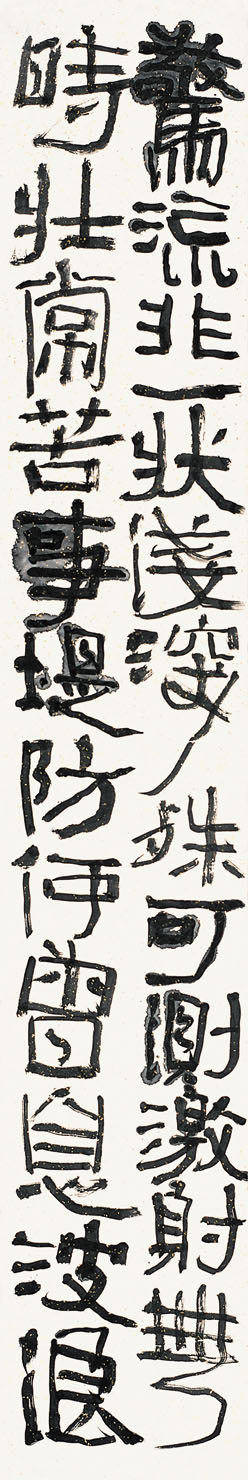 驚流非一狀淺深殊可測激射無
時壯常苦事堤防何曾息波浪